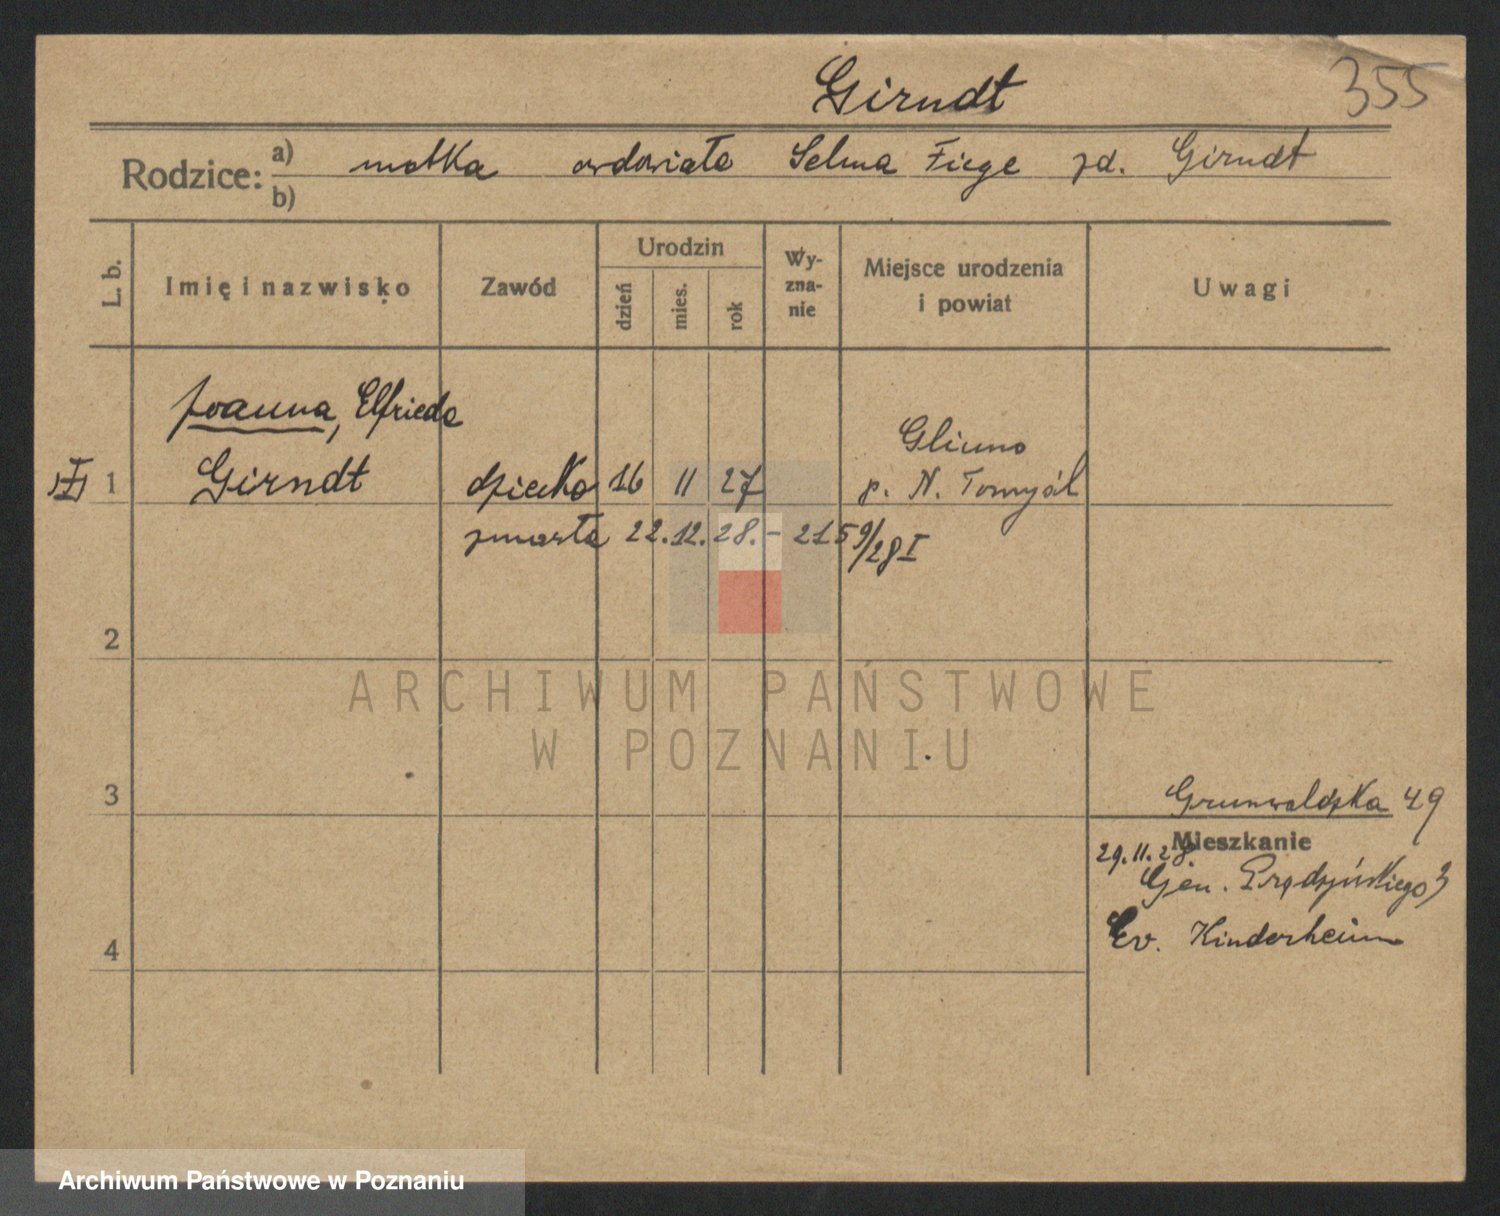 Girndt
355
Rodzice: a) matka owdowiała Selma Fiege zd. Girndt
b)
L. b.
Imię i nazwisko
Zawód
Urodzin
dzień
mies.
rok
Wy-
zna-
nie
Miejsce urodzenia
i powiat
Uwagi
Joanna, Elfrieda
Girndt
1
dziecko 16 11 27
Glinno
p. N. Tomyśl
zmarła 22.12.28. - 2159/28 I
2
3
4
Grunwaldzka 49
Mieszkanie
29.11.28.
Gen. Prądzyńskiego 3
Ev. Kinderheim
ARCHIWUM PAŃSTWOWE
W POZNANIU
Archiwum Państwowe w Poznaniu